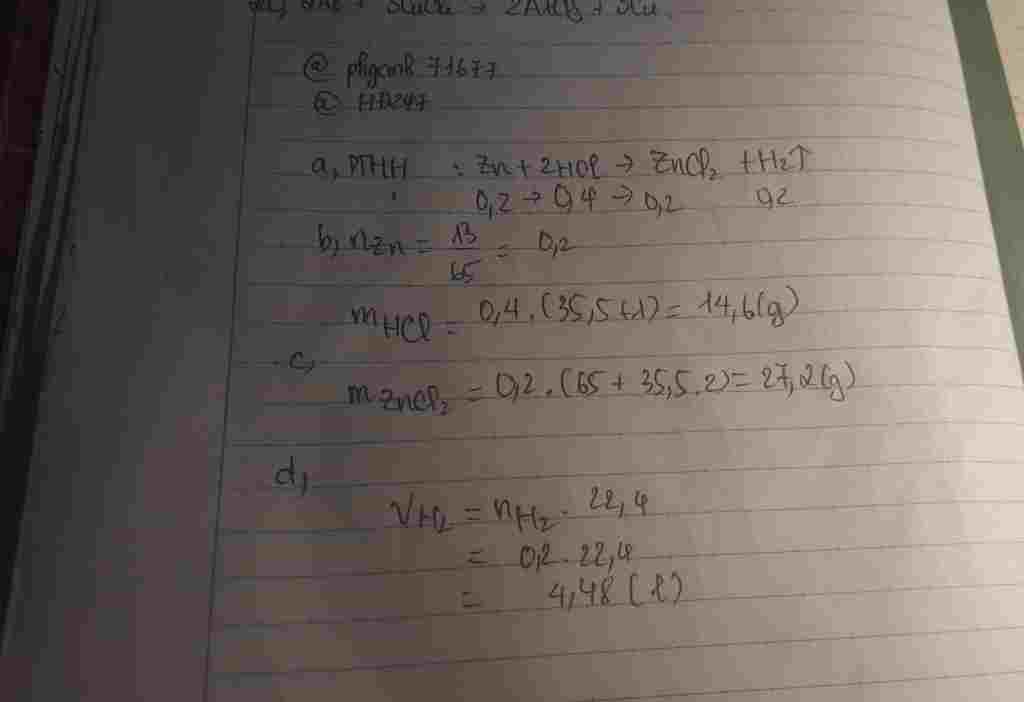 + 3CuCl₂ → 2AlCl₃ + 3Cu.
@ phgcnk 71677
@ HD247
a, PTHH : Zn + 2HCl → ZnCl₂ + H₂↑
0,2 → 0,4 → 0,2 0,2
b, nZn = 13/65 = 0,2
mHCl = 0,4 . (35,5+1) = 14,6(g)
c,
mZnCl₂ = 0,2 . (65 + 35,5.2) = 27,2(g)
d,
VH₂ = nH₂ . 22,4
= 0,2 . 22,4
= 4,48 (l)